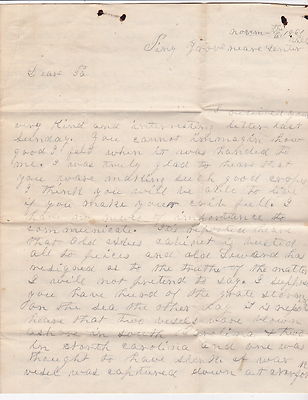 novem 1861
Piny Grove neare Senter
Dear Pa
I received your
very kind and interesting letter last
sunday. you cannot immagin how
good I felt when it was handed to
me. I was truly glad to hear that
you ware making such good crops
I think you will be able to live
if you make your crib full. I
have no news of importance to
communicate. It is reported
that old abes cabinet is busted
all to pieces and old Seward has
resigned as to the truth of the matter
I will not pretend to say. I
you have heard of the grate storm
on the sea the other day. I
heare that two vesels ware blown
ashore in South carolina &
in North carolina and one was
thought to have sunk. A war
vesel was captured down at